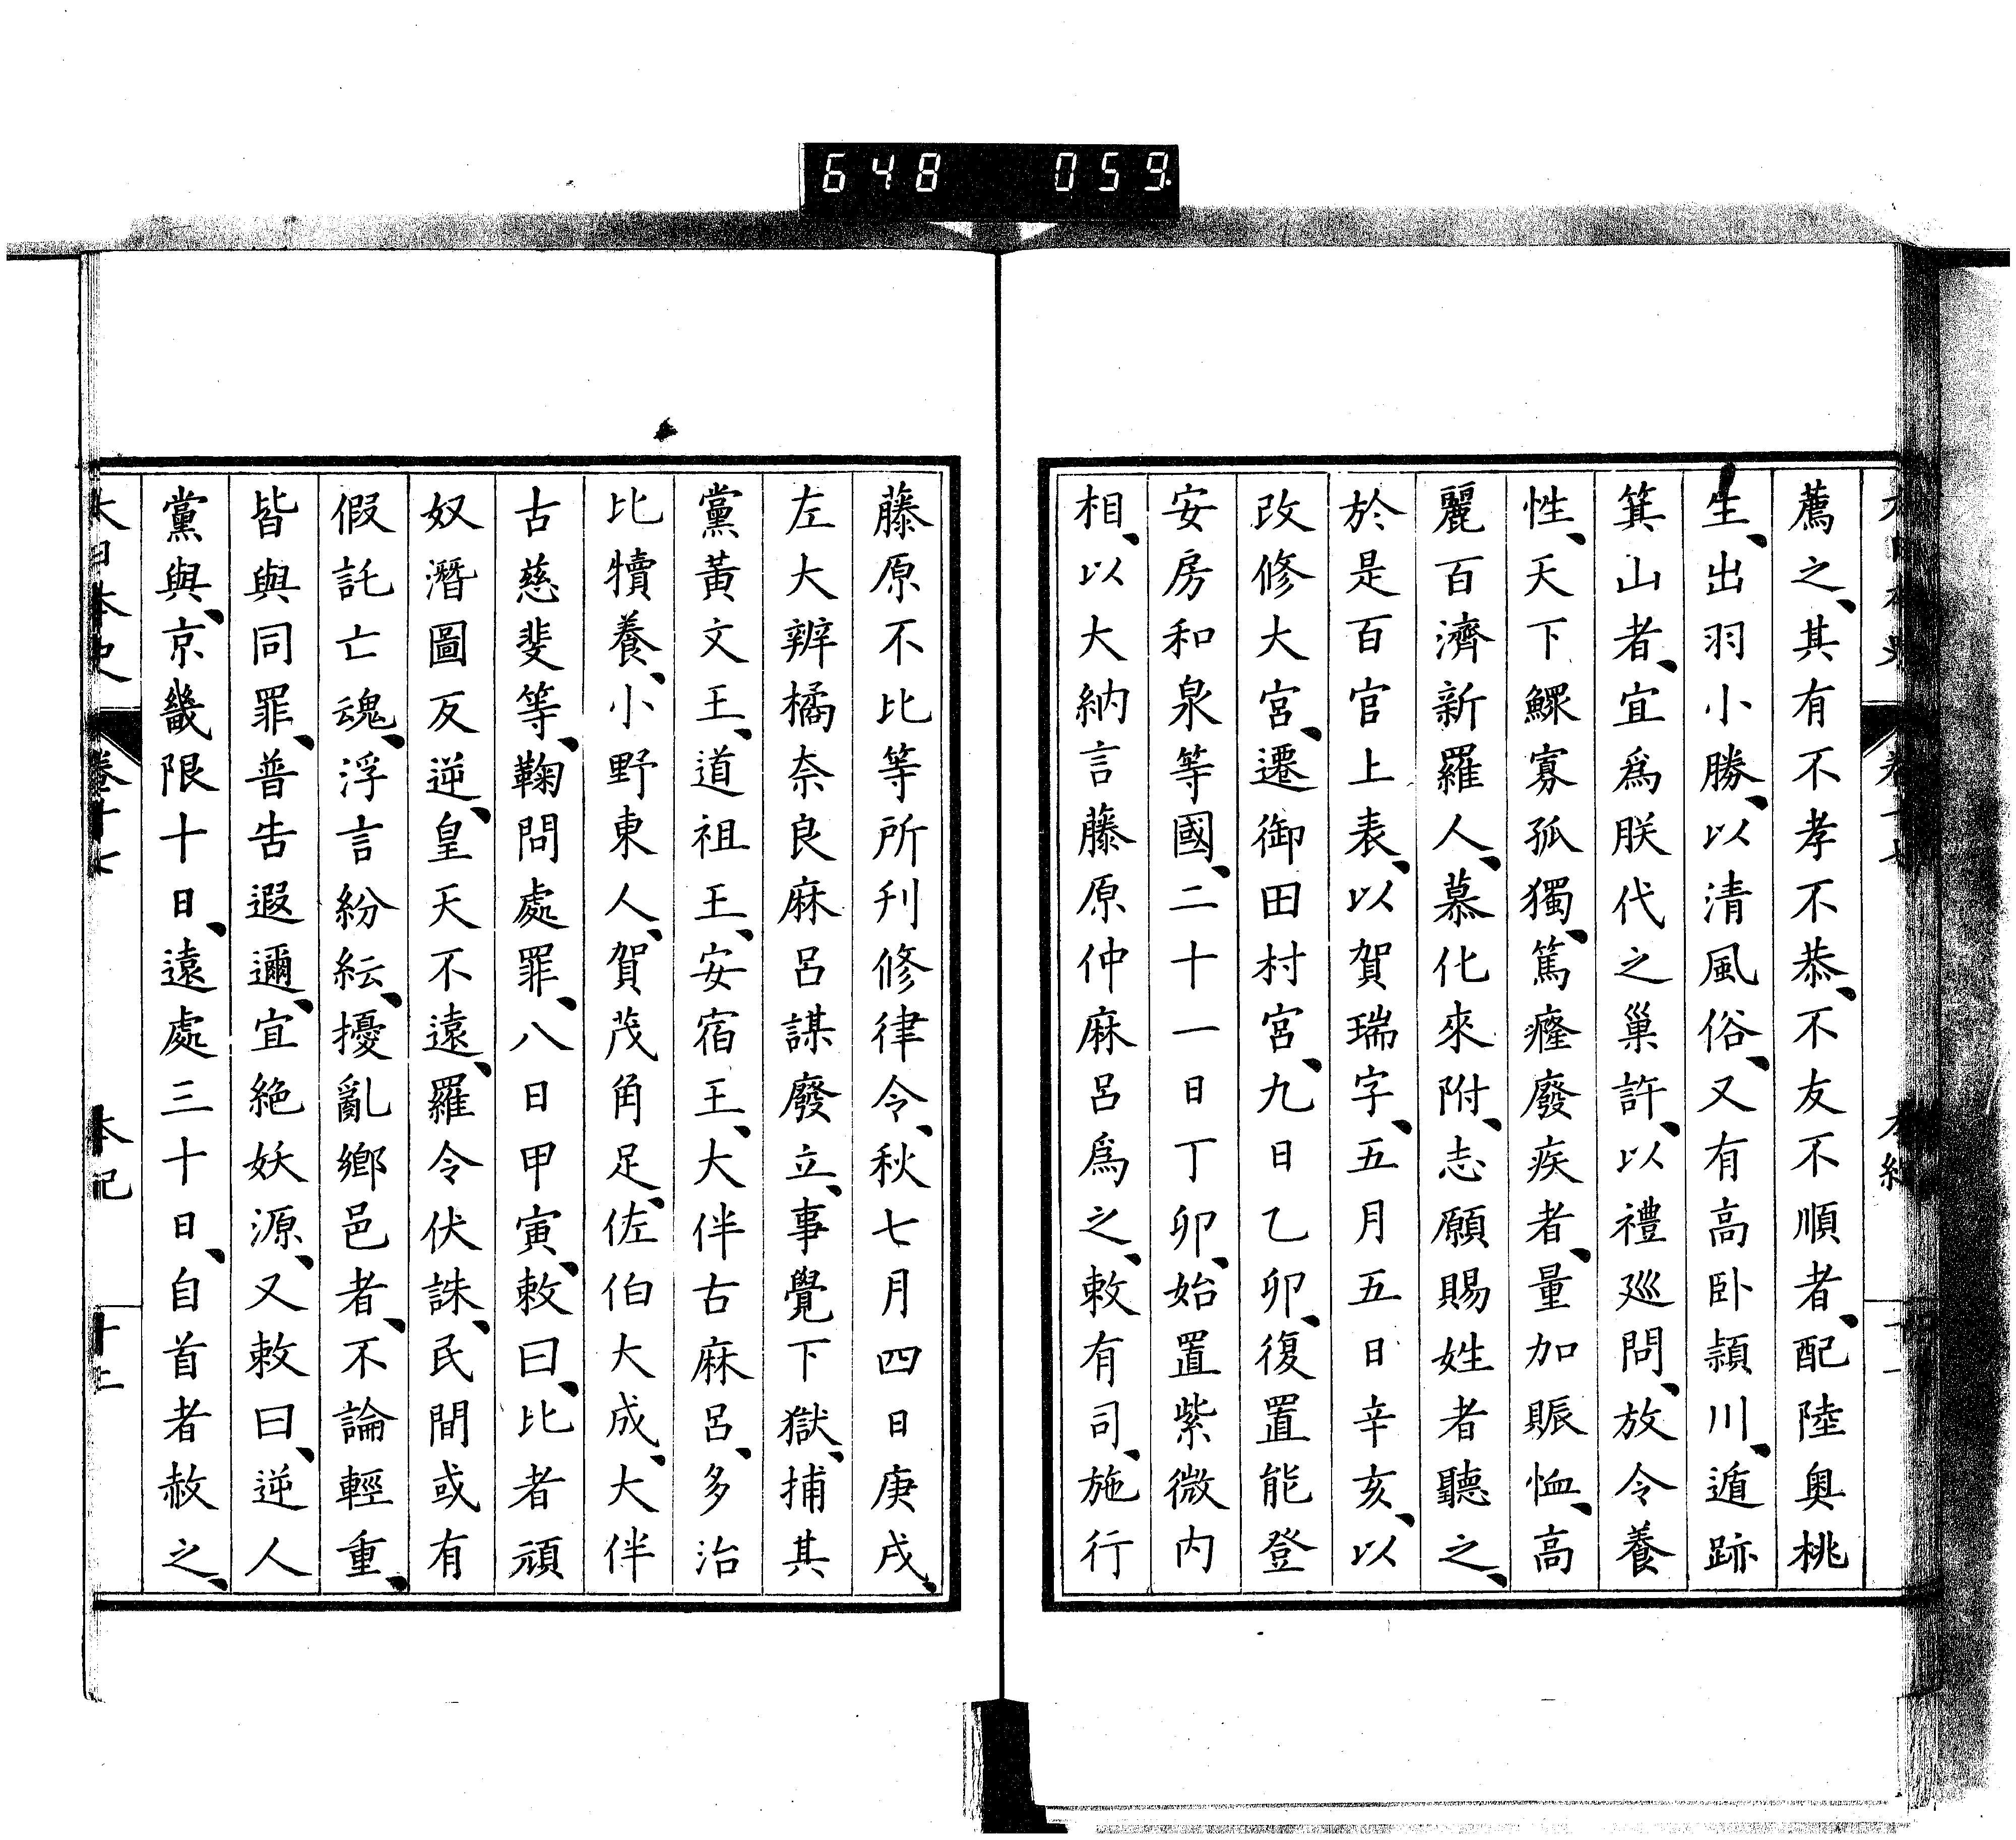 648 059
薦之、其有不孝不恭、不友不順者、配陸奧桃
生、出羽小勝、以清風俗、又有高臥潁川、遁跡
箕山者、宜爲朕代之巢許、以禮巡問、放令養
性、天下鰥寡孤獨、篤癃廢疾者、量加賑恤、高
麗百濟新羅人、慕化來附、志願賜姓者聽之、
於是百官上表、以賀瑞字、五月五日辛亥、以
改修大宮、遷御田村宮、九日乙卯、復置能登
安房和泉等國、二十一日丁卯、始置紫微内
相、以大納言藤原仲麻呂爲之、敕有司、施行
藤原不比等所刊修律令、秋七月四日庚戌、
左大辨橘奈良麻呂謀廢立、事覺下獄、捕其
黨黃文王、道祖王、安宿王、大伴古麻呂、多治
比犢養、小野東人、賀茂角足、佐伯大成、大伴
古慈斐等、鞠問處罪、八日甲寅、敕曰、比者頑
奴潛圖反逆、皇天不遠、羅令伏誅、民間或有
假託亡魂、浮言紛紜、擾亂鄉邑者、不論輕重、
皆與同罪、普告遐邇、宜絶妖源、又敕曰、逆人
黨與、京畿限十日、遠處三十日、自首者赦之、
大日本史 卷十七 本紀